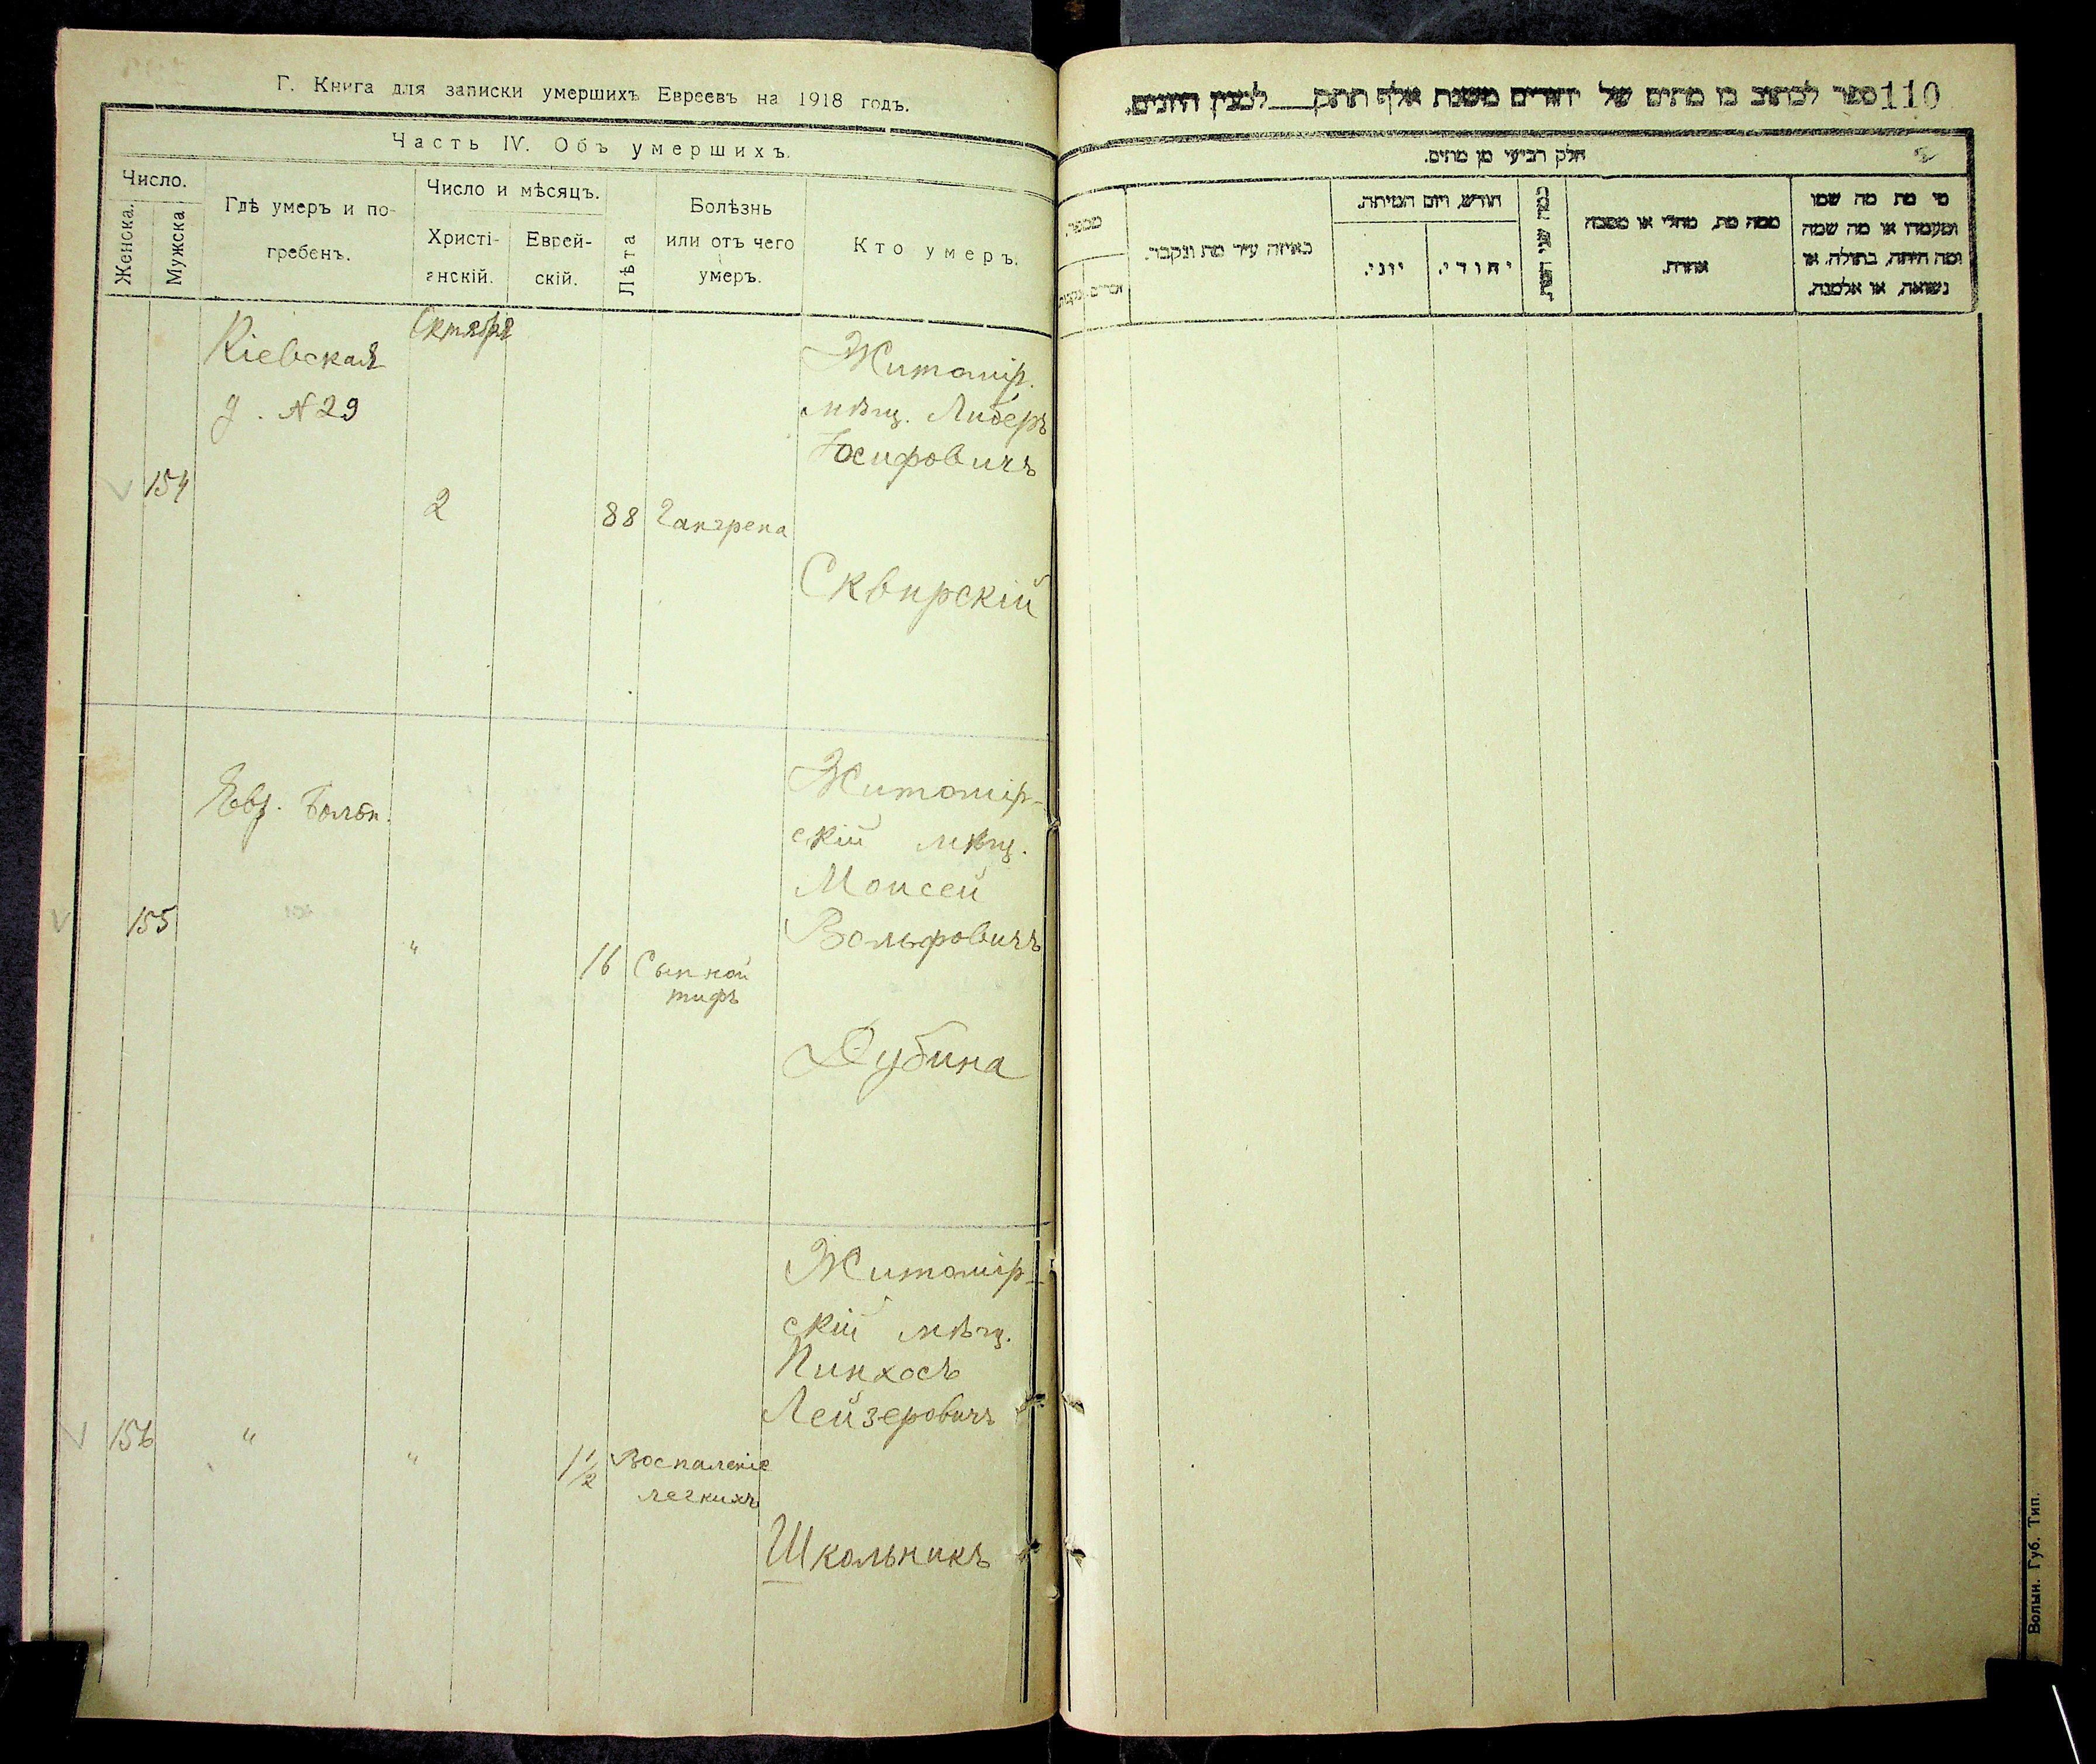 Г. Книга для записки умершихъ Евреевъ на 1918 годъ.
Часть IV. Объ умершихъ.
Число.
Женска.
Мужска
Гдѣ умеръ и по-
гребенъ.
Число и мѣсяцъ.
Христі-
анскій.
Еврей-
скій.
Лѣта
Болѣзнь
или отъ чего
умеръ.
Кто умеръ.
Октября
Кіевская
д. N 29
154
2
88
Гангрена
Житомір.
мѣщ. Либеръ
Іосифовичъ
Сквирскій
Евр. Больн.
155
"
16
Сыпной
тифъ
Житомір-
скій мѣщ.
Моисей
Вольфовичъ
Дубина
156
"
"
1 1/2
Воспаленіе
легкихъ
Житомір-
скій мѣщ.
Пинхосъ
Лейзеровичъ
Школьникъ
110
ספר לכתוב בו מתים של יהודים משנת אלף תתק למנין היונים.
חלק רביעי מן מתים.
מספר
זכרים
נקבות
באיזה עיר מת ונקבר.
חודש, ויום המיתה.
יוני.
יהודי.
ממה מת, מחלי או מסבה
אחרת.
מי מת מה שמו
ומעמדו או מה שמה
ומה היתה, בתולה, או
נשואה, או אלמנה.
Волын. Губ. Тип.